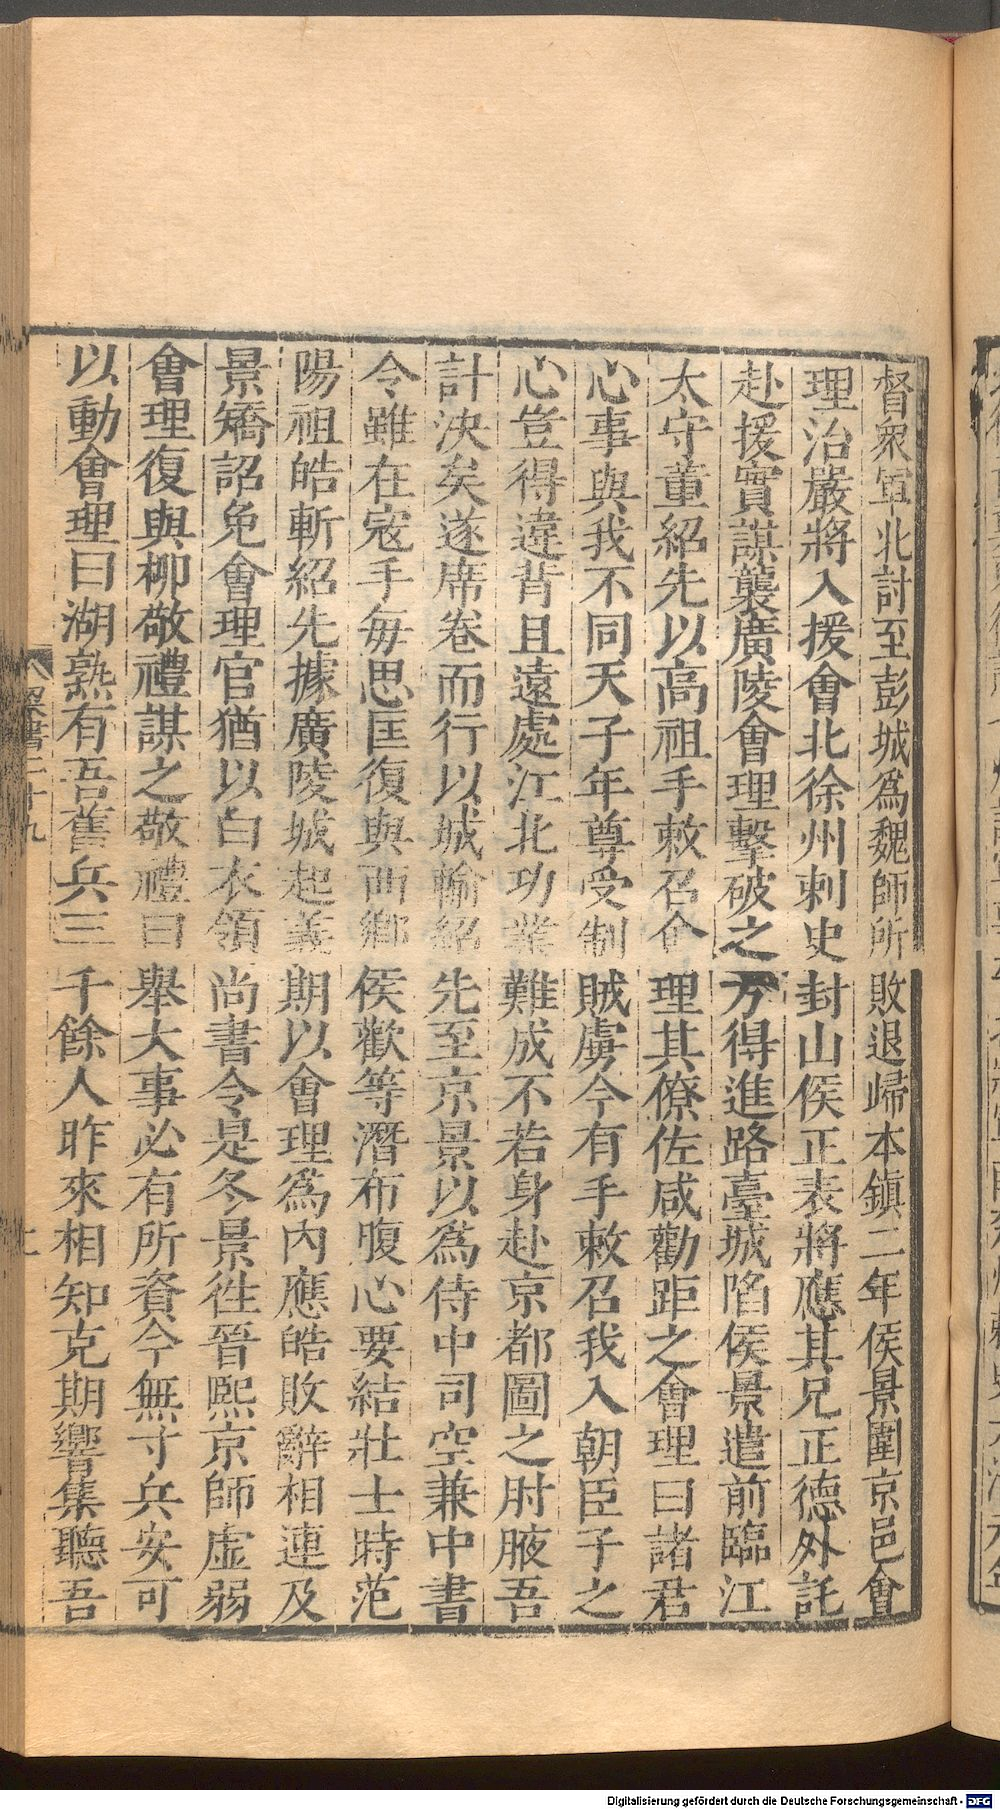 督衆軍北討至彭城爲魏師所敗退歸本鎮二年侯景圍京邑會
理治嚴將入援會北徐州刺史封山侯正表將應其兄正德外託
赴援實謀襲廣陵會理擊破之方得進路臺城陷侯景遣前臨江
太守董紹先以高祖手敕召會理其僚佐咸勸距之會理曰諸君
心事與我不同天子年尊受制賊虜今有手敕召我入朝臣子之
心豈得違背且遠處江北功業難成不若身赴京都圖之肘腋吾
計決矣遂席卷而行以城輸紹先至京景以爲侍中司空兼中書
令雖在寇手每思匡復與西鄉侯歡等潛布腹心要結壯士時范
陽祖皓斬紹先據廣陵城起義期以會理爲內應皓敗辭相連及
景矯詔免會理官猶以白衣領尚書令是冬景往晉熙京師虛弱
會理復與柳敬禮謀之敬禮曰舉大事必有所資今無寸兵安可
以動會理曰湖熟有吾舊兵三千餘人昨來相知克期響集聽吾
梁書二十九
Digitalisierung gefördert durch die Deutsche Forschungsgemeinschaft - DFG